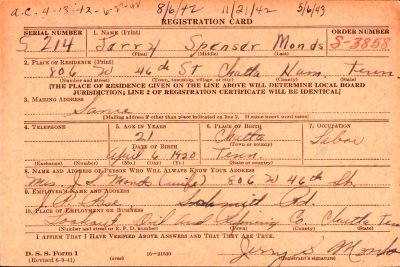 a.c. 4-13-12-6- 8/6/42 11/21/42 5/6/43
REGISTRATION CARD
SERIAL NUMBER 1. NAME (Print) ORDER NUMBER
S 214 Jerry Spenser Monds S-3858
(First) (Middle) (Last)
2. PLACE OF RESIDENCE (Print)
806 W 46th St Chatta Ham. Tenn.
(Number and street) (Town, township, village, or city) (County) (State)
[THE PLACE OF RESIDENCE GIVEN ON THE LINE ABOVE WILL DETERMINE LOCAL BOARD
JURISDICTION; LINE 2 OF REGISTRATION CERTIFICATE WILL BE IDENTICAL]
3. MAILING ADDRESS
Same
[Mailing address if other than place indicated on line 2. If same insert word same]
4. TELEPHONE 5. AGE IN YEARS 6. PLACE OF BIRTH 7. OCCUPATION
21 Chatta Labor
DATE OF BIRTH (Town or county)
April 6 1920 Tenn.
(Exchange) (Number) (Mo.) (Day) (Yr.) (State or country)
8. NAME AND ADDRESS OF PERSON WHO WILL ALWAYS KNOW YOUR ADDRESS
Mrs. J. S. Monds (wife) 806 W 46th St.
9. EMPLOYER'S NAME AND ADDRESS
J. R. Rd.
10. PLACE OF EMPLOYMENT OR BUSINESS
Oil and Co. Chatta Ten
(Number and street or R. F. D. number) (Town) (County) (State)
I AFFIRM THAT I HAVE VERIFIED ABOVE ANSWERS AND THAT THEY ARE TRUE.
D. S. S. Form 1
(Revised 6-9-41) 16-21630 Jerry S. Monds
(Registrant's signature)